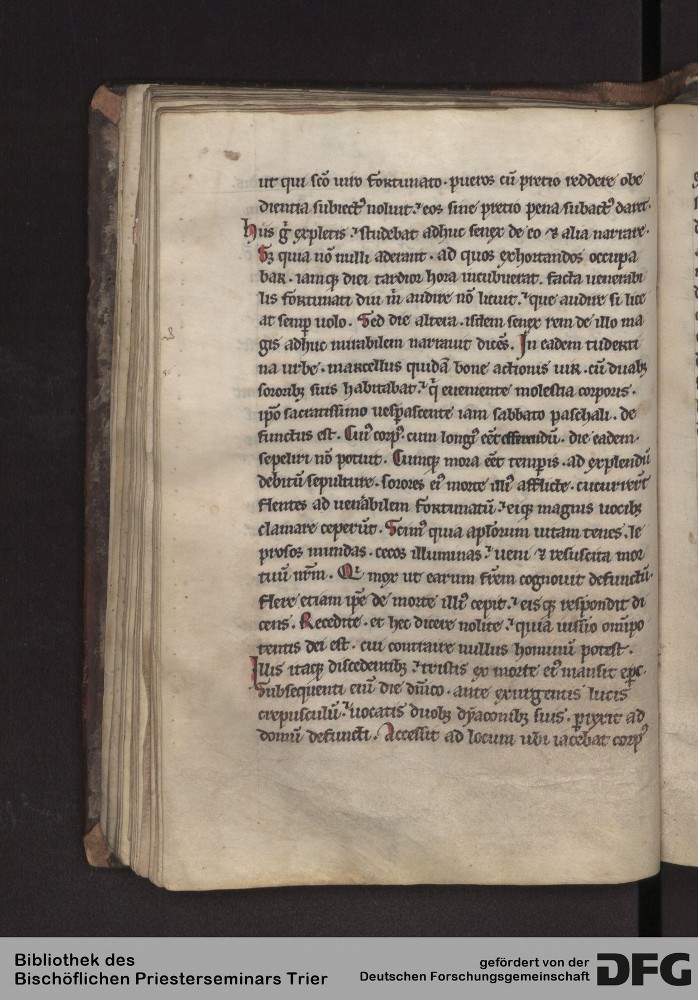 ut qui sc̄o uiro fortunato · pueros cū pretio reddere obe
dientia subiectꝰ noluit · eos sine pretio pena subactꝰ daret ·
Hiis gͥ expletis · studebat adhuc senex de eo ⁊ alia narrare ·
Sꝫ quia nō nulli aderant · ad quos exhortandos occupa
bar · iamqꝫ diei tardior hora incubuerat · facta uenerabi
lis fortunati diu m̄ audire nō licuit · que audire si lice
at semꝑ uolo · Sed die altera · isdem senex rem de illo ma
gis adhuc mirabilem narrauit dicēs · In eadem tuderti
na urbe · marcellus quidā bone actionis uir · cū duabꝫ
sororibꝫ suis habitabat · qͥ eueniente molestia corporis ·
ip̄o sacratissimo uesꝑascente iam sabbato paschali · de
functus est · Cuiꝰ corpꝰ · cum longiꝰ eēt efferendū · die eadem ·
sepeliri nō potuit · Cumqꝫ mora eēt temꝑis · ad explendū
debitū sepulture · sorores eiꝰ morte illiꝰ afflicte · cucurrer̄t
flentes ad uenabilem fortunatū · eiqꝫ magnis uocibꝫ
clamare ceperūt · Scimꝰ quia apl̄orum uitam tenes · le
prosos mundas · cecos illuminas · ueni ⁊ resuscita mor
tuū nr̄m · Qi mox ut earum fr̄em cognouit defunctū ·
flere etiam ip̄e de morte illiꝰ cepit · eisqꝫ respondit di
cens · Recedite · et hec dicere nolite · quia iussio om̄ipo
tentis dei est · cui contraire nullus hominū potest ·
Illis itaqꝫ discedentibꝫ · tristis ex morte eiꝰ mansit ep̄c ·
Subsequenti eiū die dn̄ico · ante exurgentis lucis
crepusculū · uocatis duobꝫ dyaconibꝫ suis · ꝑrexit ad
domū defuncti · Accessit ad locum ubi iacebat corpꝰ
Bibliothek des
Bischöflichen Priesterseminars Trier
gefördert von der
Deutschen Forschungsgemeinschaft
DFG